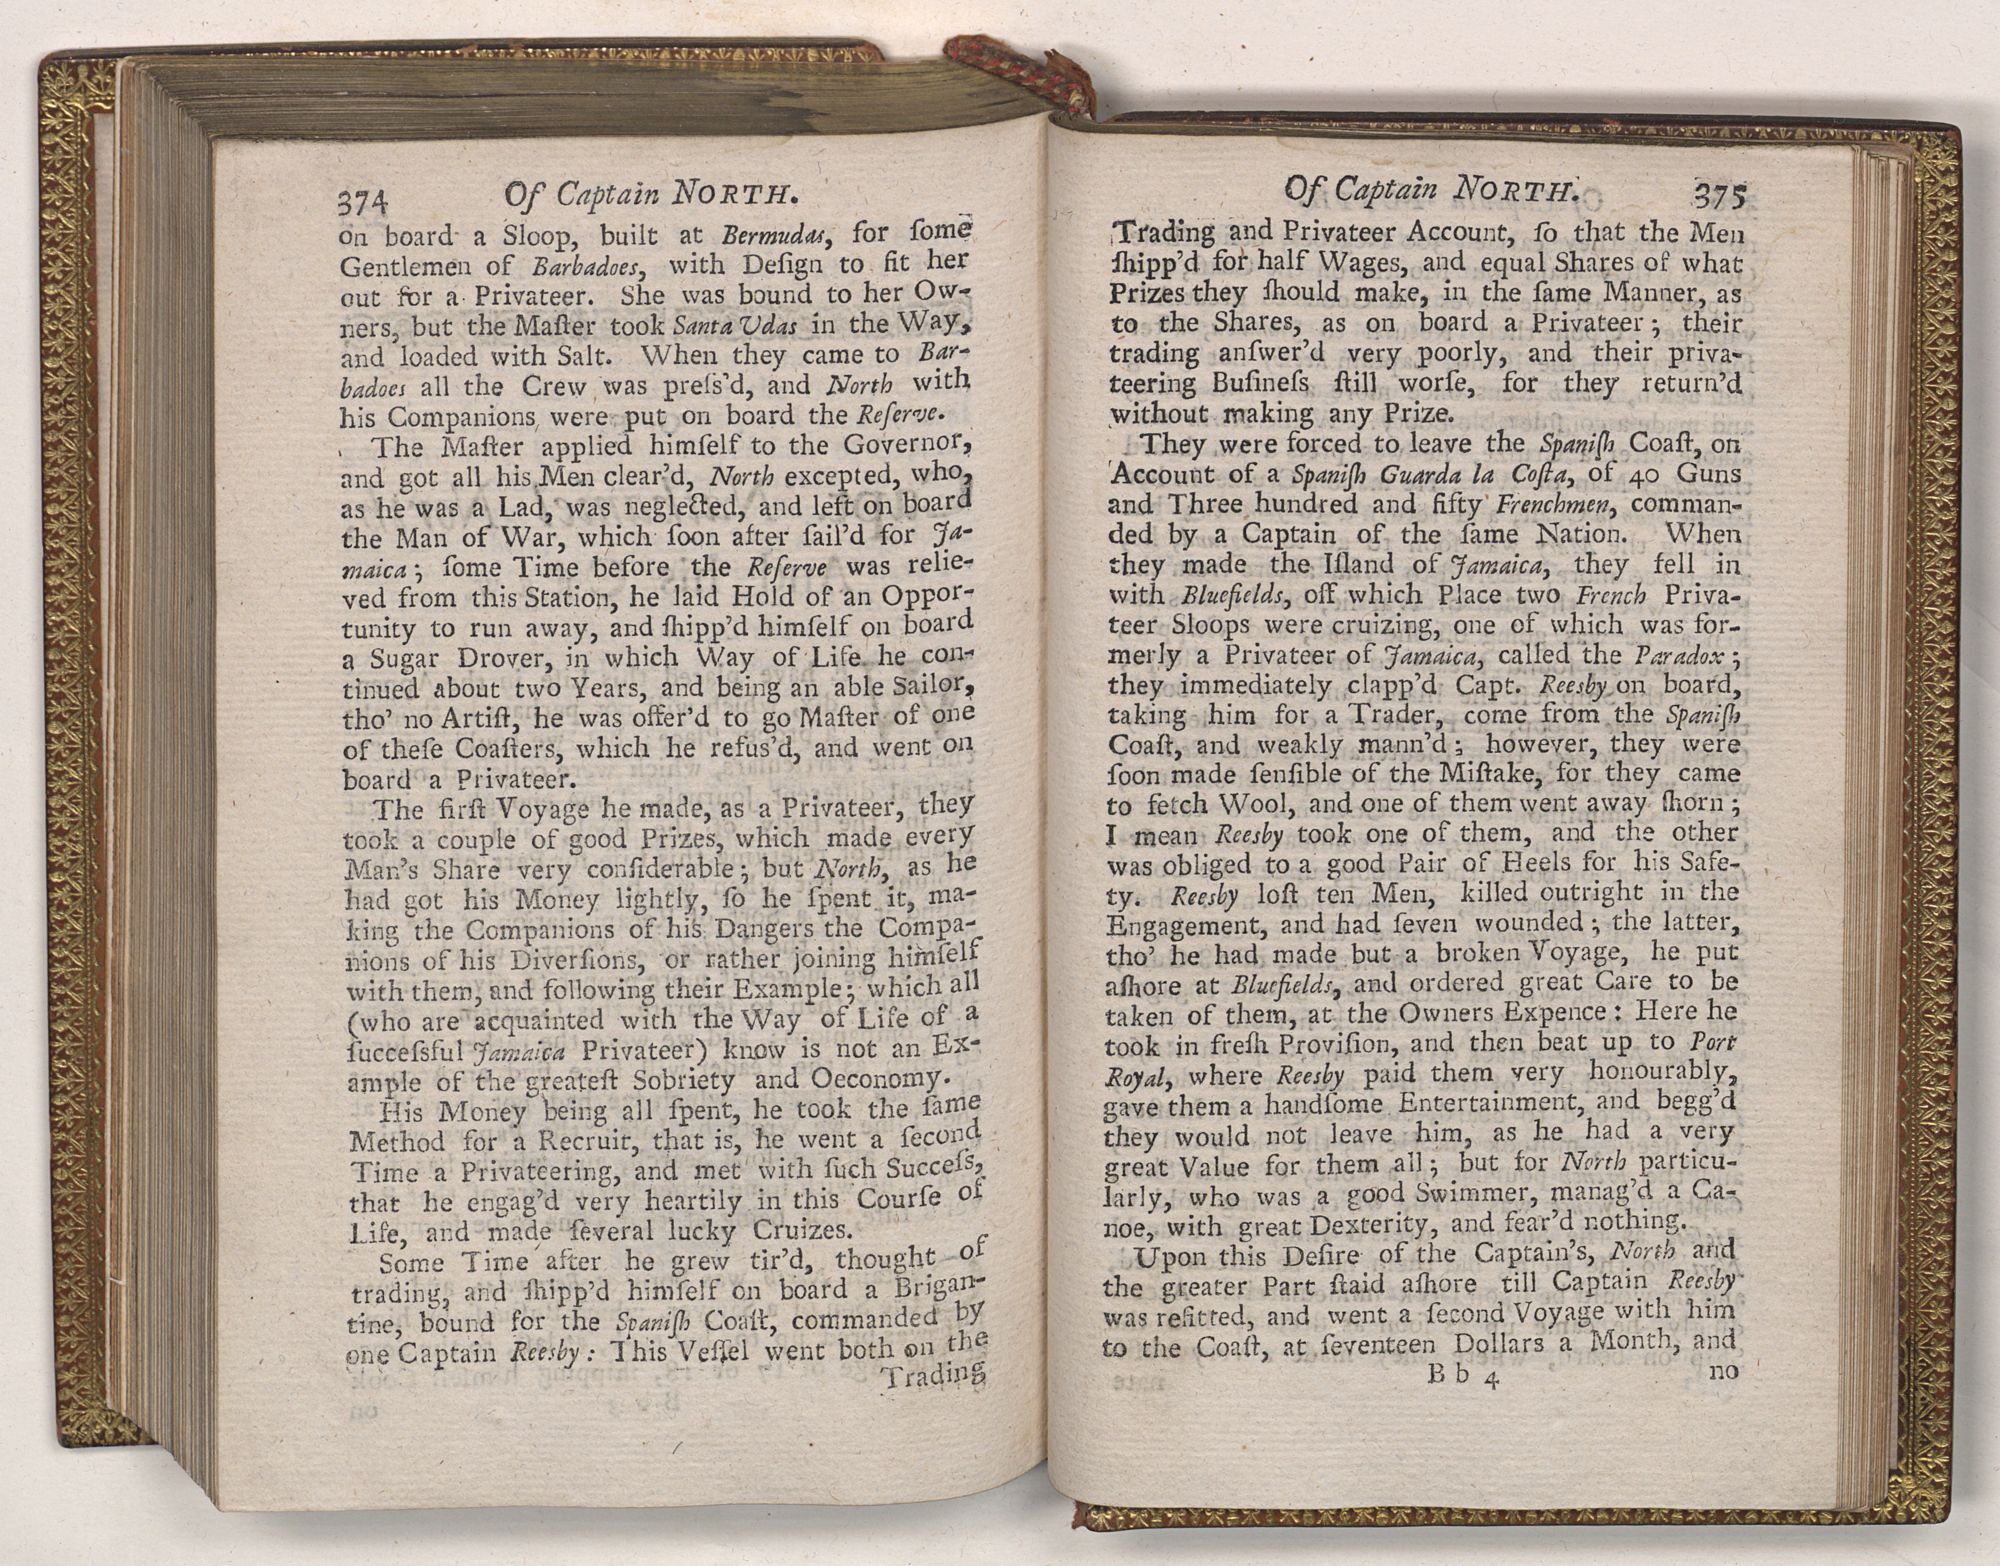 374 Of Captain NORTH.
on board a Sloop, built at Bermudas, for ſome
Gentlemen of Barbadoes, with Deſign to fit her
out for a Privateer. She was bound to her Ow-
ners, but the Maſter took Santa Udas in the Way,
and loaded with Salt. When they came to Bar-
badoes all the Crew was preſs'd, and North with
his Companions were put on board the Reſerve.
The Maſter applied himſelf to the Governor,
and got all his Men clear'd, North excepted, who,
as he was a Lad, was neglected, and left on board
the Man of War, which ſoon after ſail'd for Ja-
maica; ſome Time before the Reſerve was relie-
ved from this Station, he laid Hold of an Oppor-
tunity to run away, and ſhipp'd himſelf on board
a Sugar Drover, in which Way of Life he con-
tinued about two Years, and being an able Sailor,
tho' no Artiſt, he was offer'd to go Maſter of one
of theſe Coaſters, which he refus'd, and went on
board a Privateer.
The firſt Voyage he made, as a Privateer, they
took a couple of good Prizes, which made every
Man's Share very conſiderable; but North, as he
had got his Money lightly, ſo he ſpent it, ma-
king the Companions of his Dangers the Compa-
nions of his Diverſions, or rather joining himſelf
with them, and following their Example; which all
(who are acquainted with the Way of Life of a
ſucceſsful Jamaica Privateer) know is not an Ex-
ample of the greateſt Sobriety and Oeconomy.
His Money being all ſpent, he took the ſame
Method for a Recruit, that is, he went a ſecond
Time a Privateering, and met with ſuch Succeſs,
that he engag'd very heartily in this Courſe of
Life, and made ſeveral lucky Cruizes.
Some Time after he grew tir'd, thought of
trading, and ſhipp'd himſelf on board a Brigan-
tine, bound for the Spaniſh Coaſt, commanded by
one Captain Reesby: This Veſſel went both on the
Trading
Of Captain NORTH. 375
Trading and Privateer Account, ſo that the Men
ſhipp'd for half Wages, and equal Shares of what
Prizes they ſhould make, in the ſame Manner, as
to the Shares, as on board a Privateer; their
trading anſwer'd very poorly, and their priva-
teering Buſineſs ſtill worſe, for they return'd
without making any Prize.
They were forced to leave the Spaniſh Coaſt, on
Account of a Spaniſh Guarda la Coſta, of 40 Guns
and Three hundred and fifty Frenchmen, comman-
ded by a Captain of the ſame Nation. When
they made the Iſland of Jamaica, they fell in
with Bluefields, off which Place two French Priva-
teer Sloops were cruizing, one of which was for-
merly a Privateer of Jamaica, called the Paradox;
they immediately clapp'd Capt. Reesby on board,
taking him for a Trader, come from the Spaniſh
Coaſt, and weakly mann'd; however, they were
ſoon made ſenſible of the Miſtake, for they came
to fetch Wool, and one of them went away ſhorn;
I mean Reesby took one of them, and the other
was obliged to a good Pair of Heels for his Safe-
ty. Reesby loſt ten Men, killed outright in the
Engagement, and had ſeven wounded; the latter,
tho' he had made but a broken Voyage, he put
aſhore at Bluefields, and ordered great Care to be
taken of them, at the Owners Expence: Here he
took in freſh Proviſion, and then beat up to Port
Royal, where Reesby paid them very honourably,
gave them a handſome Entertainment, and begg'd
they would not leave him, as he had a very
great Value for them all; but for North particu-
larly, who was a good Swimmer, manag'd a Ca-
noe, with great Dexterity, and fear'd nothing.
Upon this Deſire of the Captain's, North and
the greater Part ſtaid aſhore till Captain Reesby
was refitted, and went a ſecond Voyage with him
to the Coaſt, at ſeventeen Dollars a Month, and
B b 4 no